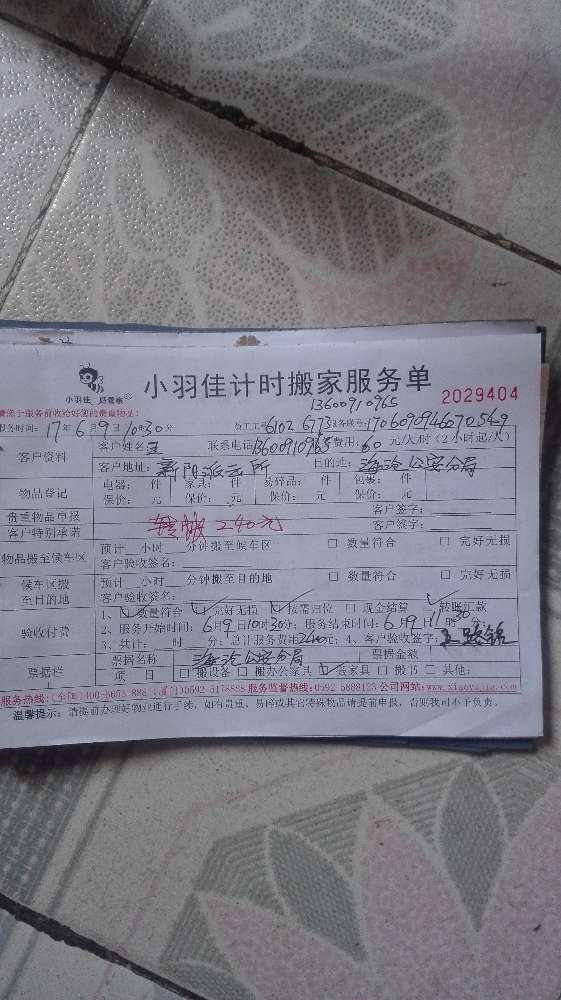 小羽佳 好管家® 小羽佳计时搬家服务单
13600910965 2029404
请您于服务前收拾好您的贵重物品!
服务时间: 17年6月9日10时30分 员工工号6102 6773服务账号:17060909460705409
客户资料 客户姓名 王 联系电话13600910965费用: 60 元/人/时 (2小时起/人)
客户地址: 新阳派出所 目的地: 海沧公安分局
物品登记 电器: 件 家具: 件 易碎品: 件 包装: 件
保价: 元 保价: 元 保价: 元 保价: 元
贵重物品申报 客户签字:
客户特别承诺 转账 240元 客户签字:
物品搬至候车区 预计__小时__分钟搬至候车区 □ 数量符合 □ 完好无损
客户验收签名:
候车区搬至目的地 预计__小时__分钟搬至目的地 □ 数量符合 □ 完好无损
客户验收签名:
验收付费 1、☑数量符合 ☑完好无损 ☑按需归位 □ 现金结算 ☑转账汇款
2、服务开始时间: 6月9日10时30分; 服务结束时间: 6月9日11时30分;
3、共计: 时 分; 总计服务费用240元; 4、客户验收签字:
票据栏 票据名称 海沧公安分局 票据金额
项 目 □ 搬设备 □ 搬办公家具 ☑搬家具 □ 搬书 □ 其他:
服务热线:(全国)400-5653-888 (厦门)0592-5178888 服务监督热线:0592-5888123 公司网站:www.xiaoyujia.com
温馨提示: 请提前办理好物业进行手续, 如有贵重、易碎或其它特殊物品请提前申报, 否则我司不予负责。